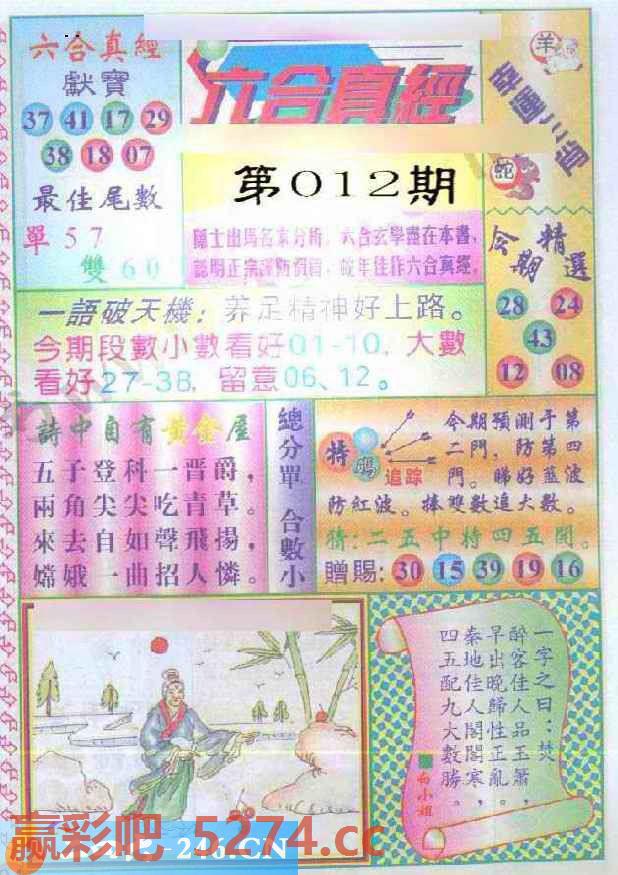 六合真經
獻寶
37 41 17 29
38 18 07
最佳尾數
單 5 7
雙 6 0
六合真經
第012期
隱士出馬名家分析，六合玄學盡在本書，
認明正宗謹防假冒，蛇年佳作六合真經。
羊
蛇
今期
精選
28 24
43
12 08
一語破天機：养足精神好上路。
今期段數小數看好01-10，大數
看好27-38，留意06、12。
詩中自有黃金屋
五子登科一晋爵，
兩角尖尖吃青草。
來去自如聲飛揚，
嫦娥一曲招人憐。
總分單 合數小
特碼
追踪
今期預測于第
二門，防第四
門。睇好藍波
防紅波。捧雙數追大數。
猜：二五中特四五開。
贈賜：30 15 39 19 16
一字之曰：焚
醉客佳人品玉簫，
早出晚歸性正亂。
秦地佳人閣閣寒，
四五配九大數勝。
白小姐
赢彩吧 5274.cc
246.CN